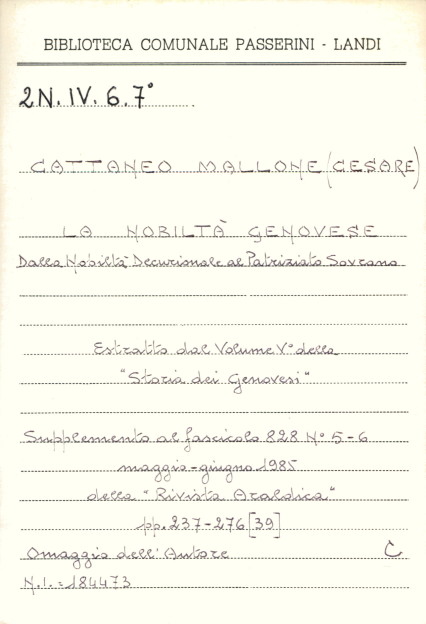 BIBLIOTECA COMUNALE PASSERINI - LANDI
2N. IV. 6. 7°
CATTANEO MALLONE (CESARE)
LA NOBILTÀ GENOVESE
Dalla Nobiltà Decurionale al Patriziato Sovrano
Estratto dal Volume V° della
"Storia dei Genovesi"
Supplemento al fascicolo 828 N° 5-6
maggio-giugno 1985
della "Rivista Araldica"
pp. 237-276 [39]
Omaggio dell'Autore C
N.I. = 184473